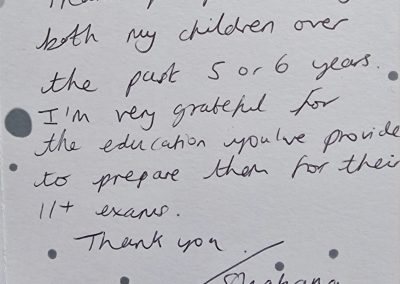 both my children over
the past 5 or 6 years.
I'm very grateful for
the education you've provide
to prepare them for their
11+ exams.
Thank you.